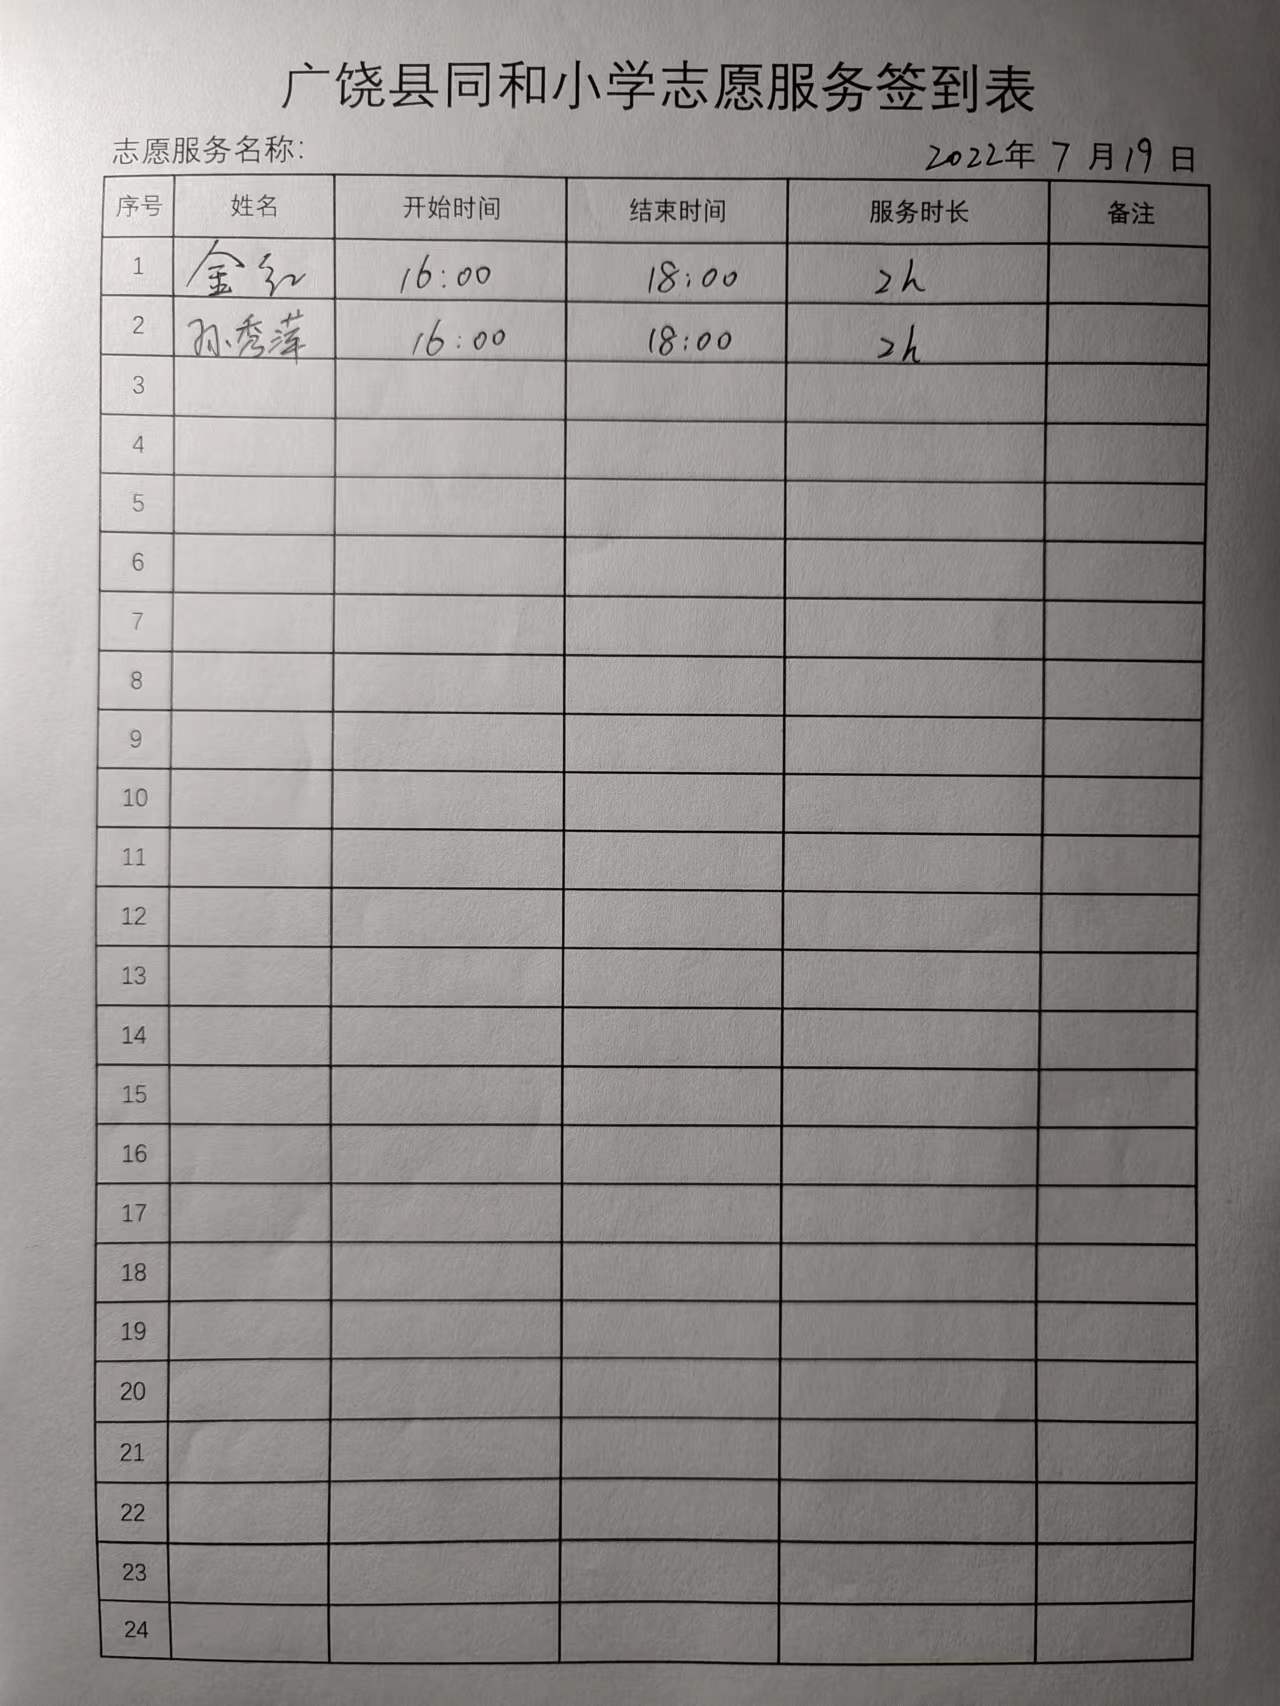 广饶县同和小学志愿服务签到表
志愿服务名称: 2022年 7 月 19 日
序号 姓名 开始时间 结束时间 服务时长 备注
1 金红 16:00 18:00 2h
2 孙秀萍 16:00 18:00 2h
3
4
5
6
7
8
9
10
11
12
13
14
15
16
17
18
19
20
21
22
23
24